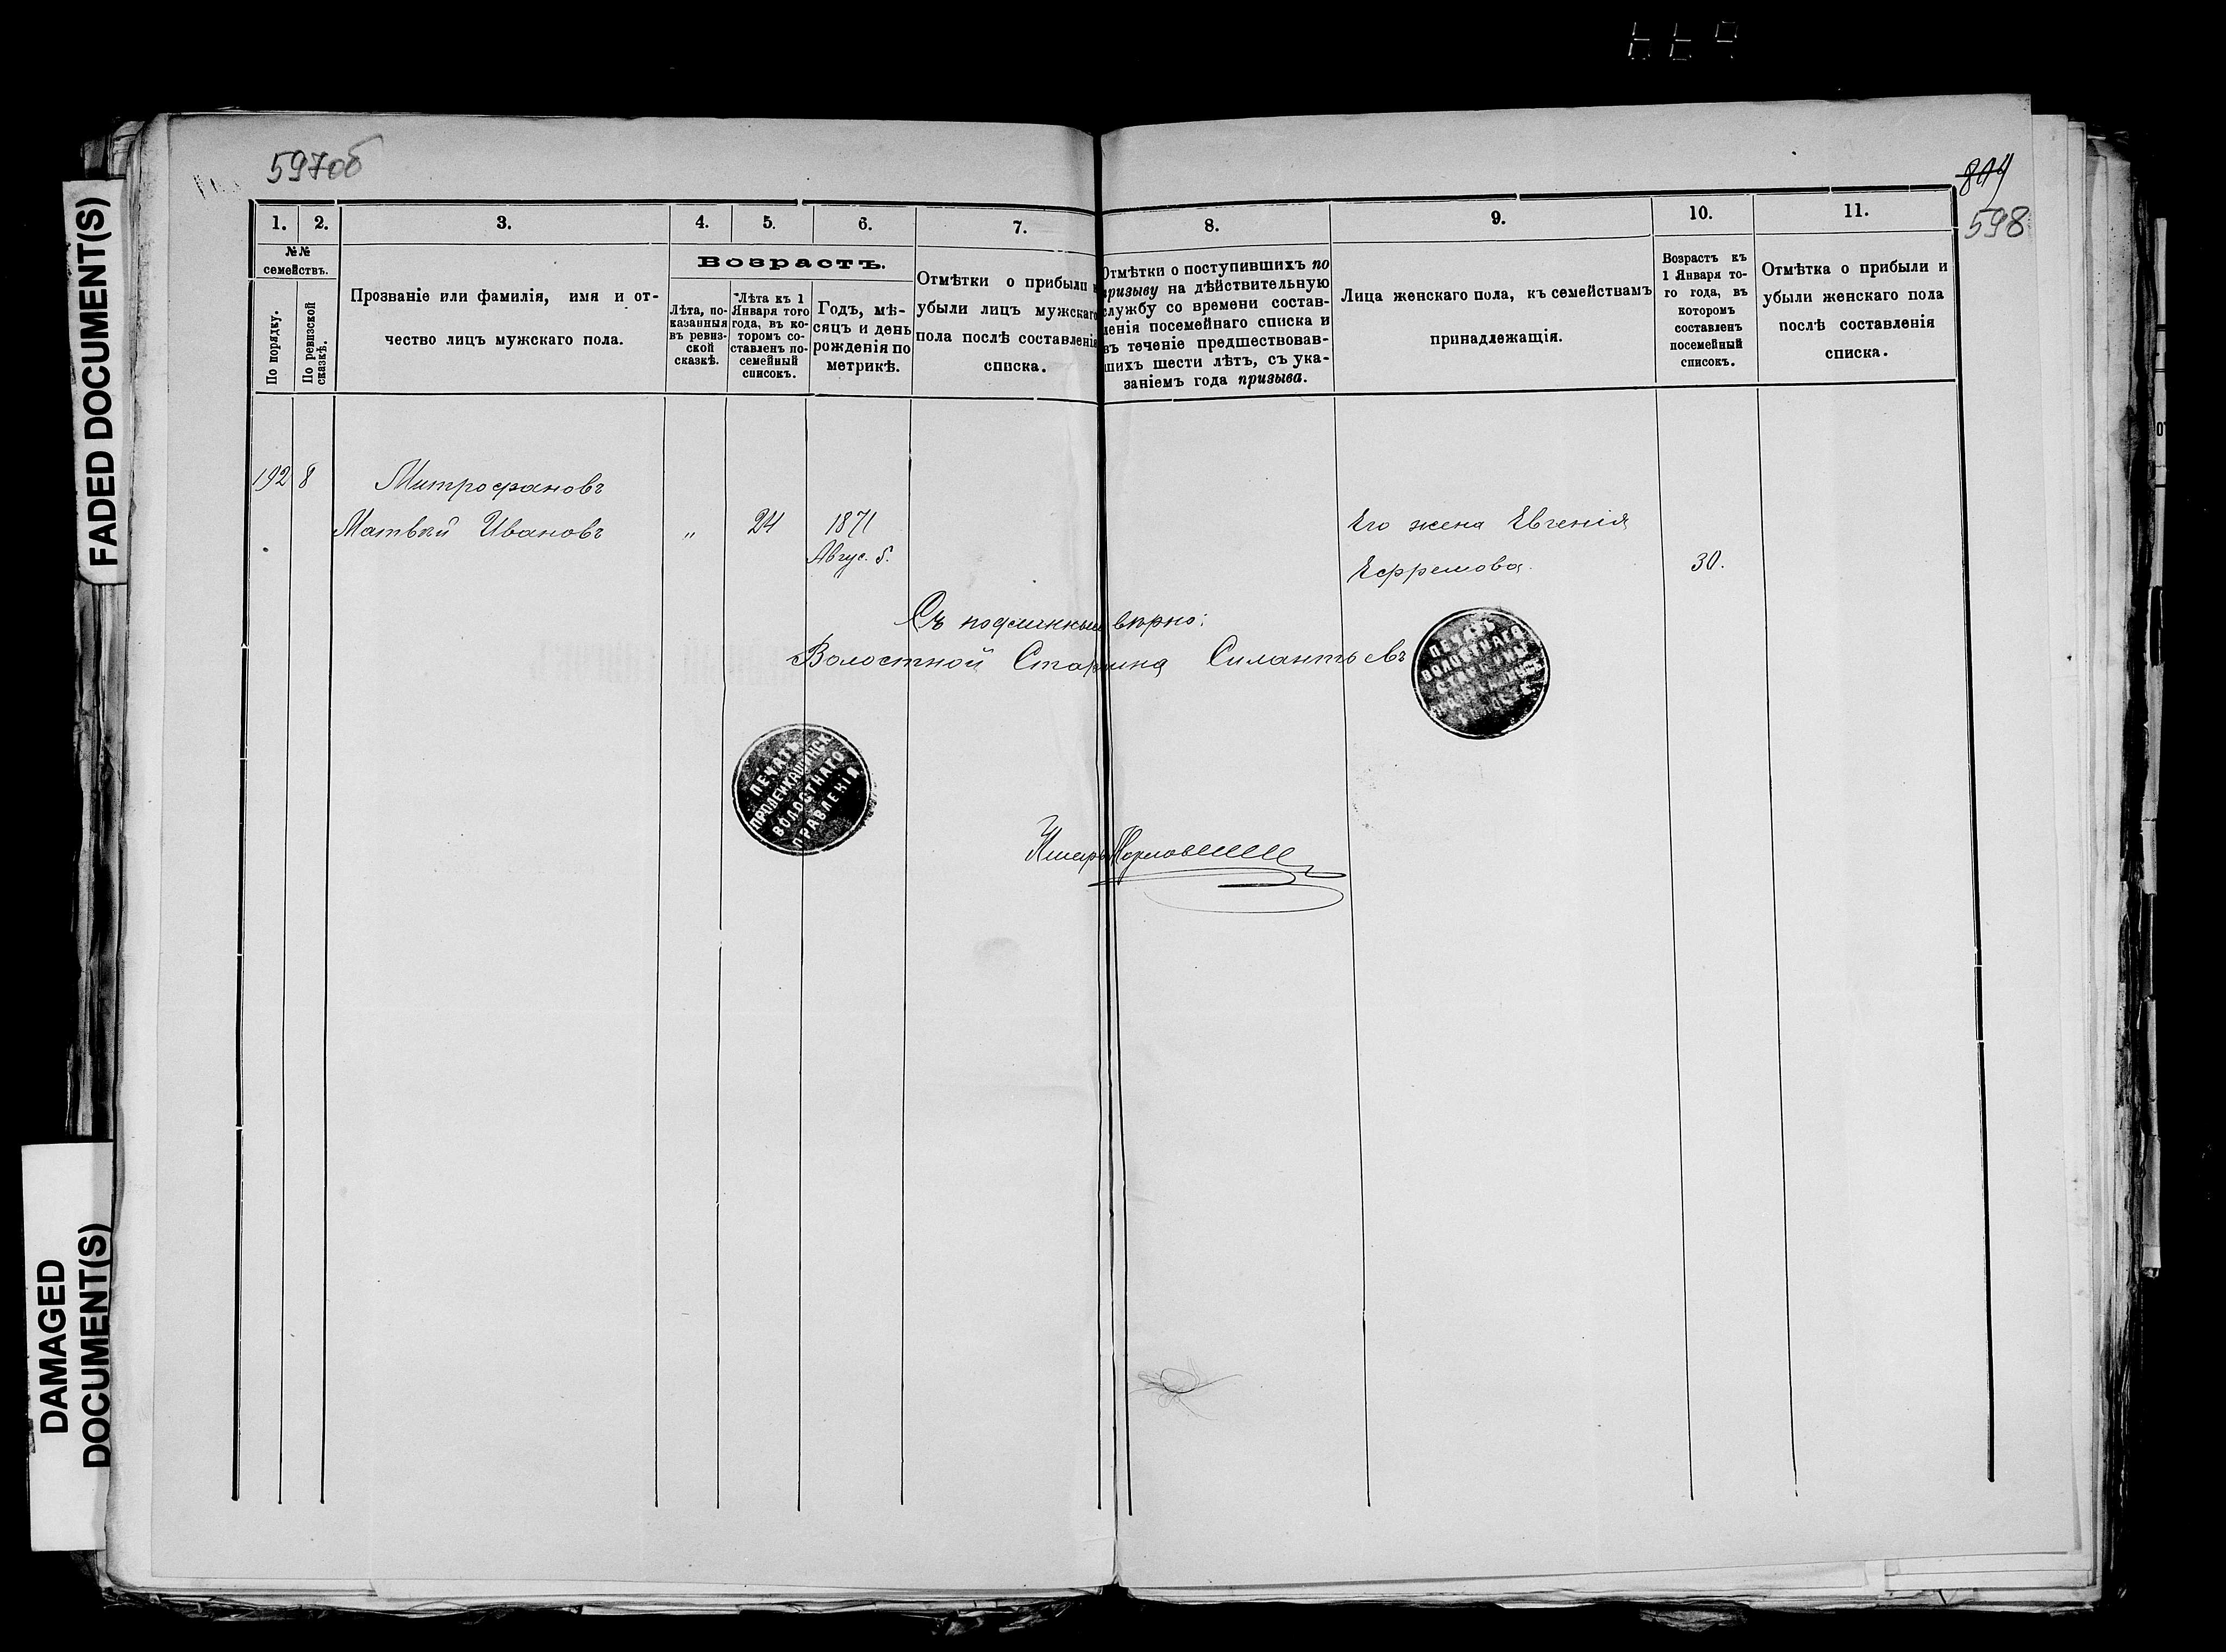 FADED DOCUMENT(S)
DAMAGED
DOCUMENT(S)
597об
804
598
1. 2. 3. 4. 5. 6. 7. 8. 9. 10. 11.
№№
семействъ.
По порядку.
По ревизской
сказкѣ.
Прозваніе или фамилія, имя и от-
чество лицъ мужскаго пола.
Возрастъ.
Лѣта, по-
казанныя
въ ревиз-
ской
сказкѣ.
Лѣта къ 1
Января того
года, въ ко-
торомъ со-
ставленъ по-
семейный
списокъ.
Годъ, мѣ-
сяцъ и день
рожденія по
метрикѣ.
Отмѣтки о прибыли и
убыли лицъ мужскаго
пола послѣ составленія
списка.
Отмѣтки о поступившихъ по
призыву на дѣйствительную
службу со времени состав-
ленія посемейнаго списка и
въ теченіе предшествовав-
шихъ шести лѣтъ, съ ука-
заніемъ года призыва.
Лица женскаго пола, къ семействамъ
принадлежащія.
Возрастъ къ
1 Января то-
го года, въ
которомъ
составленъ
посемейный
списокъ.
Отмѣтка о прибыли и
убыли женскаго пола
послѣ составленія
списка.
192 8 Митрофановъ
Матвѣй Ивановъ " 24 1871 Его жена Евгенія
Авгус. 5. Ефремова. 30.
Съ подлиннымъ вѣрно:
Волостной Старшина Силантьевъ
ПЕЧАТЬ
ВОЛОСТНАГО
ПЕЧАТЬ
ВОЛОСТНАГО
ПРАВЛЕНІЯ